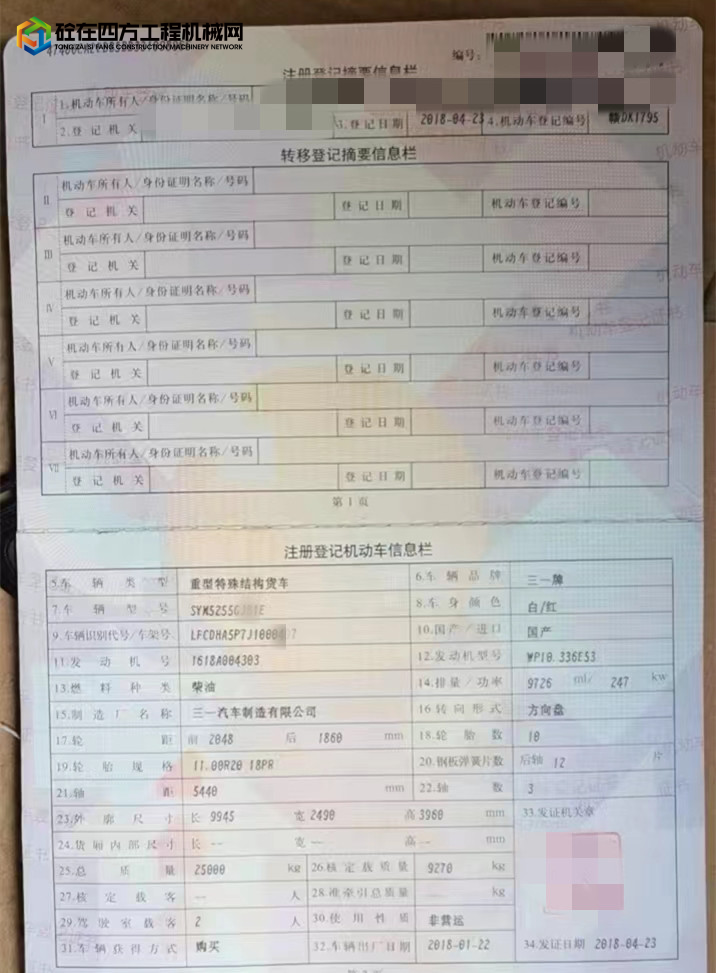 砼在四方工程机械网
TONG ZAI SI FANG CONSTRUCTION MACHINERY NETWORK
编号:
注册登记摘要信息栏
I 1.机动车所有人/身份证明名称/号码
2.登记机关 3.登记日期 2018-04-23 4.机动车登记编号 赣DK1795
转移登记摘要信息栏
II 机动车所有人/身份证明名称/号码
登记机关 登记日期 机动车登记编号
III 机动车所有人/身份证明名称/号码
登记机关 登记日期 机动车登记编号
IV 机动车所有人/身份证明名称/号码
登记机关 登记日期 机动车登记编号
V 机动车所有人/身份证明名称/号码
登记机关 登记日期 机动车登记编号
VI 机动车所有人/身份证明名称/号码
登记机关 登记日期 机动车登记编号
VII 机动车所有人/身份证明名称/号码
登记机关 登记日期 机动车登记编号
第1页
注册登记机动车信息栏
5.车辆类型 重型特殊结构货车 6.车辆品牌 三一牌
7.车辆型号 8.车身颜色 白/红
9.车辆识别代号/车架号 10.国产/进口 国产
11.发动机号 1618A004303 12.发动机型号 WP10.336E53
13.燃料种类 柴油 14.排量/功率 9726 ml/ 247 kw
15.制造厂名称 三一汽车制造有限公司 16转向形式 方向盘
17.轮距 前 2048 后 1860 mm 18.轮胎数 10
19.轮胎规格 11.00R20 18PR 20.钢板弹簧片数 后轴 12 片
21.轴距 5440 mm 22.轴数 3
23.外廓尺寸 长 9945 宽 2490 高 3960 mm 33.发证机关章
24.货厢内部尺寸 长 -- 宽 -- 高 -- mm
25.总质量 25000 kg 26核定载质量 9270 kg
27.核定载客 -- 人 28.准牵引总质量 -- kg
29.驾驶室载客 2 人 30.使用性质 非营运
31.车辆获得方式 购买 32.车辆出厂日期 2018-01-22 34.发证日期 2018-04-23